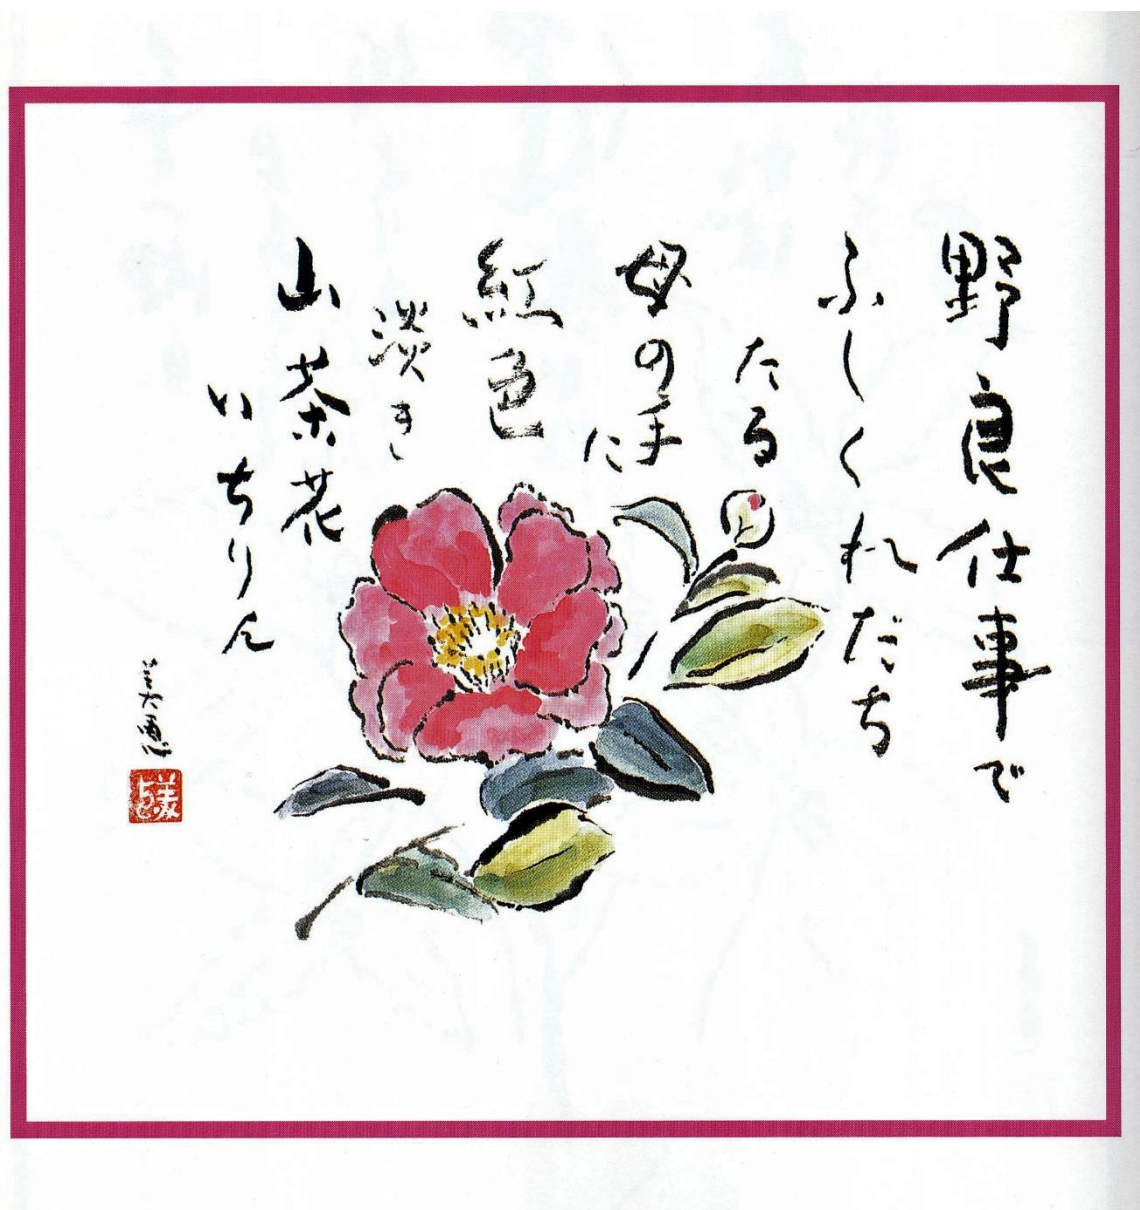 野良仕事で
ふしくれだち
たる
母の手に
紅色
淡き
山茶花
いちりん
美恵